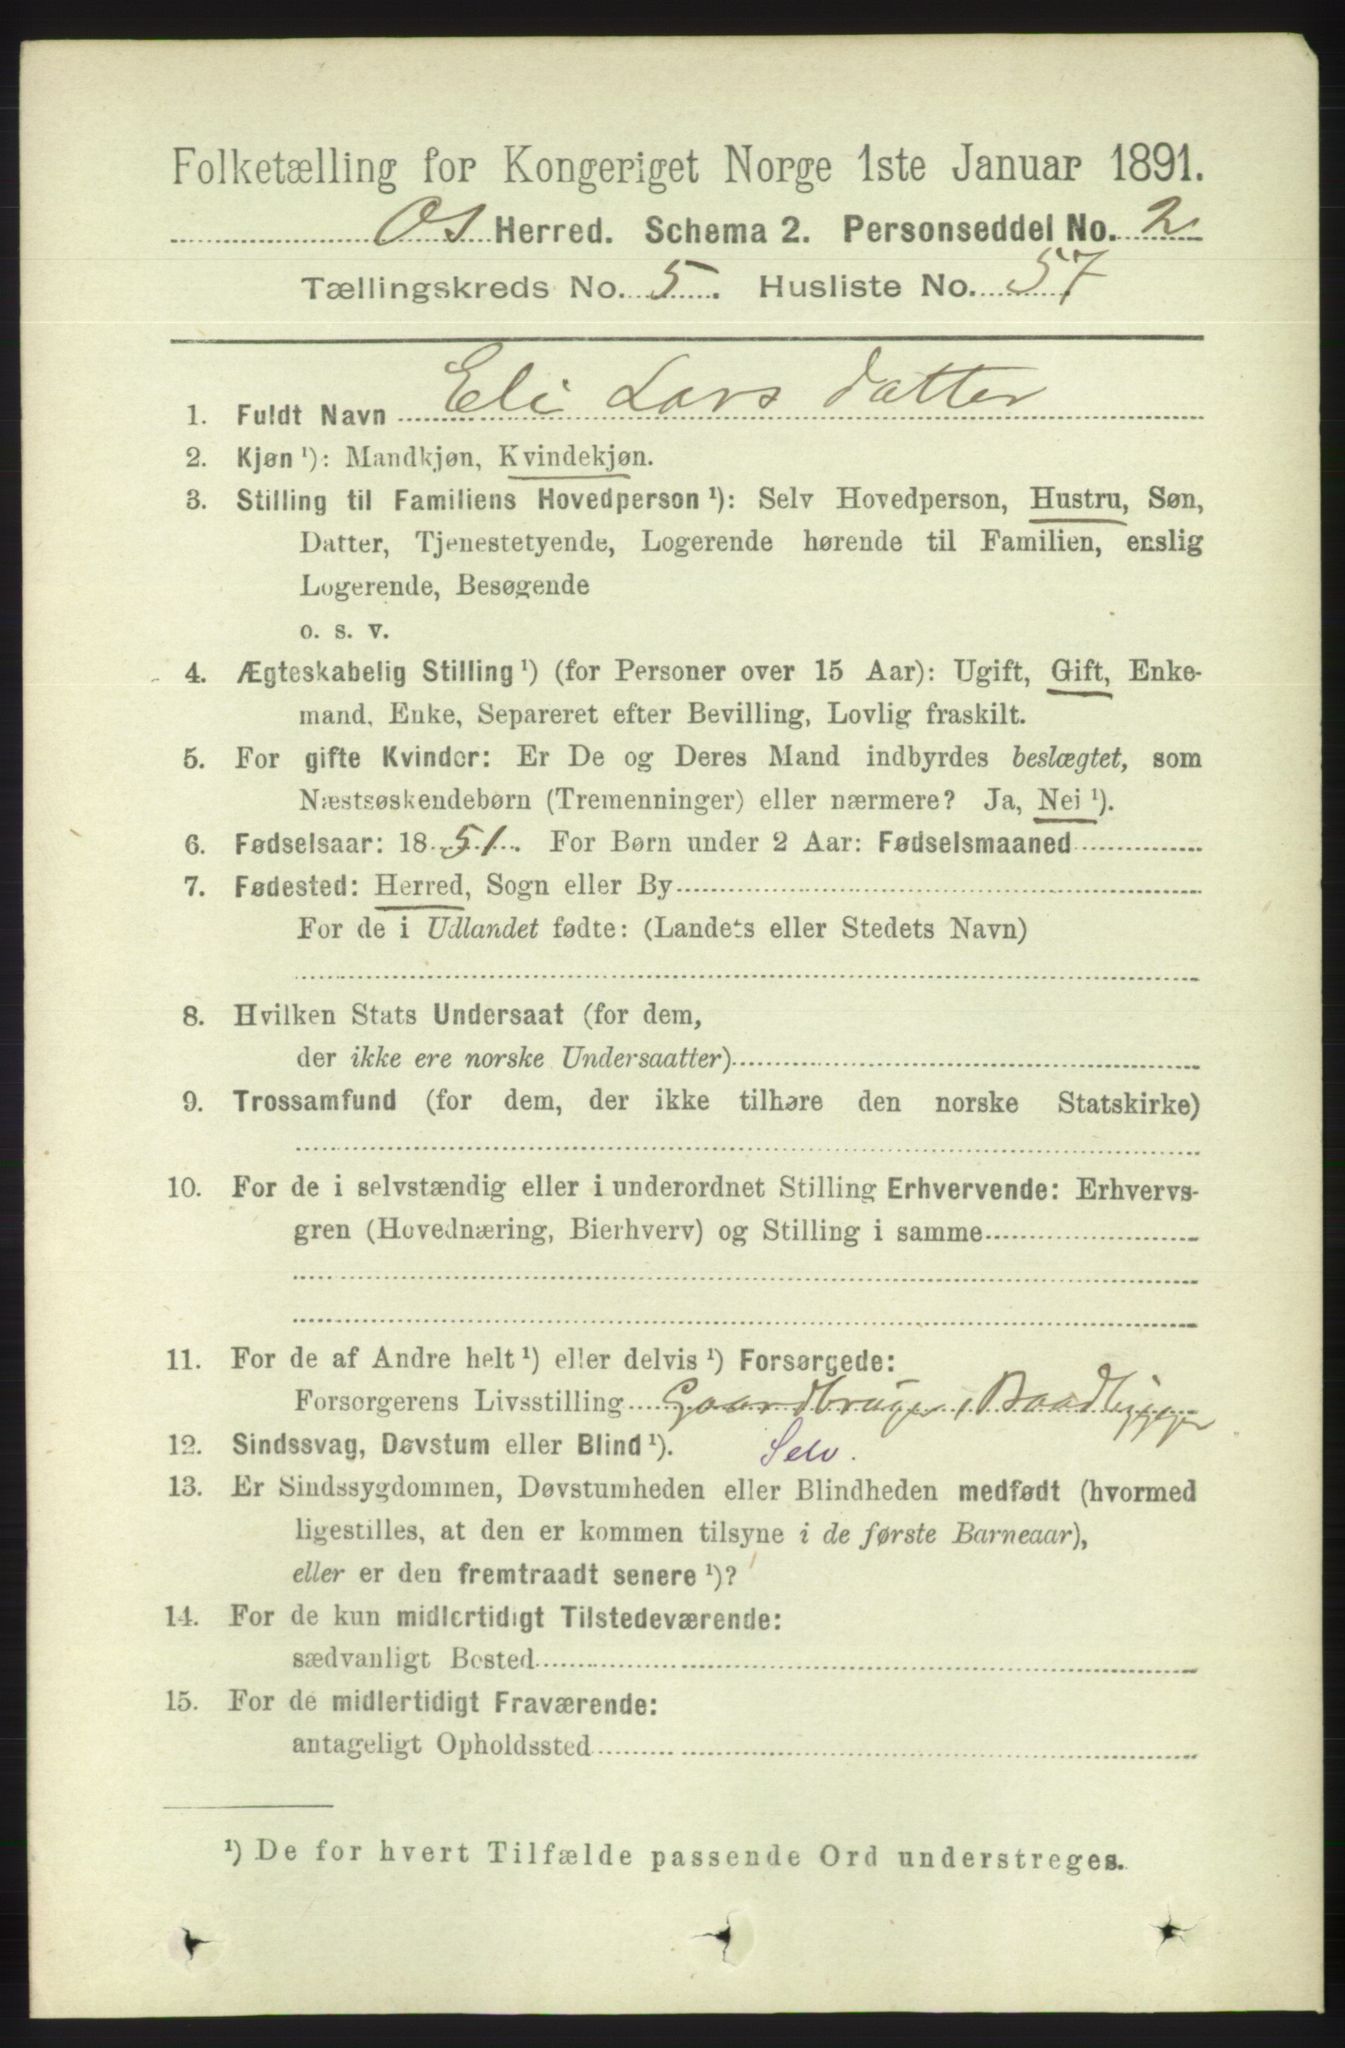 Folketælling for Kongeriget Norge 1ste Januar 1891.
Os Herred. Schema 2. Personseddel No. 2
Tællingskreds No. 5. Husliste No. 57
1. Fuldt Navn Eli Lars datter
2. Kjøn ¹): Mandkjøn, Kvindekjøn.
3. Stilling til Familiens Hovedperson ¹): Selv Hovedperson, Hustru, Søn,
Datter, Tjenestetyende, Logerende hørende til Familien, enslig
Logerende, Besøgende
o. s. v.
4. Ægteskabelig Stilling ¹) (for Personer over 15 Aar): Ugift, Gift, Enke-
mand, Enke, Separeret efter Bevilling, Lovlig fraskilt.
5. For gifte Kvinder: Er De og Deres Mand indbyrdes beslægtet, som
Næstsøskendebørn (Tremenninger) eller nærmere? Ja, Nei ¹).
6. Fødselsaar: 1851. For Børn under 2 Aar: Fødselsmaaned
7. Fødested: Herred, Sogn eller By
For de i Udlandet fødte: (Landets eller Stedets Navn)
8. Hvilken Stats Undersaat (for dem,
der ikke ere norske Undersaatter)
9. Trossamfund (for dem, der ikke tilhøre den norske Statskirke)
10. For de i selvstændig eller i underordnet Stilling Erhvervende: Erhvervs-
gren (Hovednæring, Bierhverv) og Stilling i samme
11. For de af Andre helt ¹) eller delvis ¹) Forsørgede:
Forsørgerens Livsstilling Gaardbruger, Baadbygger
12. Sindssvag, Døvstum eller Blind ¹). Selv.
13. Er Sindssygdommen, Døvstumheden eller Blindheden medfødt (hvormed
ligestilles, at den er kommen tilsyne i de første Barneaar),
eller er den fremtraadt senere ¹)?
14. For de kun midlertidigt Tilstedeværende:
sædvanligt Bosted
15. For de midlertidigt Fraværende:
antageligt Opholdssted
¹) De for hvert Tilfælde passende Ord understreges.